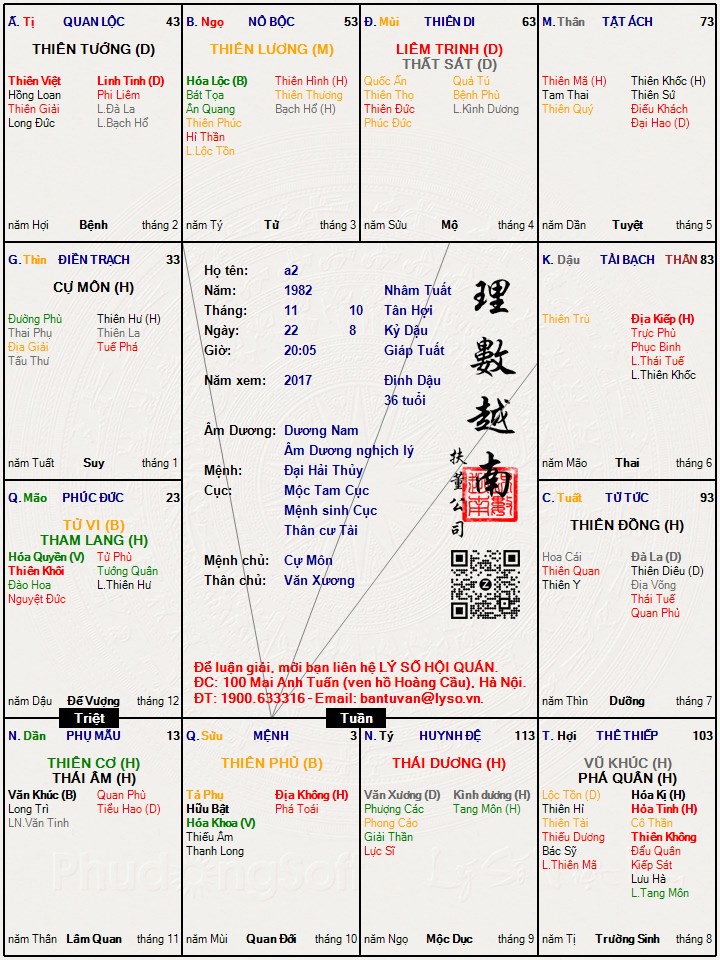 Ấ. Tị QUAN LỘC 43
THIÊN TƯỚNG (D)
Thiên Việt Linh Tinh (D)
Hồng Loan Phi Liêm
Thiên Giải L.Đà La
Long Đức L.Bạch Hổ
năm Hợi Bệnh tháng 2
B. Ngọ NÔ BỘC 53
THIÊN LƯƠNG (M)
Hóa Lộc (B) Thiên Hình (H)
Bát Tọa Thiên Thương
Ân Quang Bạch Hổ (H)
Thiên Phúc
Hỉ Thần
L.Lộc Tồn
năm Tý Tử tháng 3
Đ. Mùi THIÊN DI 63
LIÊM TRINH (D)
THẤT SÁT (D)
Quốc Ấn Quả Tú
Thiên Thọ Bệnh Phù
Thiên Đức L.Kình Dương
Phúc Đức
năm Sửu Mộ tháng 4
M. Thân TẬT ÁCH 73
Thiên Mã (H) Thiên Khốc (H)
Tam Thai Thiên Sứ
Thiên Quý Điếu Khách
Đại Hao (D)
năm Dần Tuyệt tháng 5
G. Thìn ĐIỀN TRẠCH 33
CỰ MÔN (H)
Đường Phù Thiên Hư (H)
Thai Phụ Thiên La
Địa Giải Tuế Phá
Tấu Thư
năm Tuất Suy tháng 1
Họ tên: a2
Năm: 1982 Nhâm Tuất
Tháng: 11 10 Tân Hợi
Ngày: 22 8 Kỷ Dậu
Giờ: 20:05 Giáp Tuất
Năm xem: 2017 Đinh Dậu
36 tuổi
Âm Dương: Dương Nam
Âm Dương nghịch lý
Mệnh: Đại Hải Thủy
Cục: Mộc Tam Cục
Mệnh sinh Cục
Thân cư Tài
Mệnh chủ: Cự Môn
Thân chủ: Văn Xương
理數越南
扶董公司
Để luận giải, mời bạn liên hệ LÝ SỐ HỘI QUÁN.
ĐC: 100 Mai Anh Tuấn (ven hồ Hoàng Cầu), Hà Nội.
ĐT: 1900.633316 - Email: bantuvan@lyso.vn.
K. Dậu TÀI BẠCH THÂN 83
Thiên Trù Địa Kiếp (H)
Trực Phù
Phục Binh
L.Thái Tuế
L.Thiên Khốc
năm Mão Thai tháng 6
Q. Mão PHÚC ĐỨC 23
TỬ VI (B)
THAM LANG (H)
Hóa Quyền (V) Tử Phù
Thiên Khôi Tướng Quân
Đào Hoa L.Thiên Hư
Nguyệt Đức
năm Dậu Đế Vượng tháng 12
C. Tuất TỬ TỨC 93
THIÊN ĐỒNG (H)
Hoa Cái Đà La (D)
Thiên Quan Thiên Diêu (D)
Thiên Y Địa Võng
Thái Tuế
Quan Phủ
năm Thìn Dưỡng tháng 7
Triệt
Tuần
N. Dần PHỤ MẪU 13
THIÊN CƠ (H)
THÁI ÂM (H)
Văn Khúc (B) Quan Phù
Long Trì Tiểu Hao (D)
LN.Văn Tinh
năm Thân Lâm Quan tháng 11
Q. Sửu MỆNH 3
THIÊN PHỦ (B)
Tả Phụ Địa Không (H)
Hữu Bật Phá Toái
Hóa Khoa (V)
Thiếu Âm
Thanh Long
năm Mùi Quan Đới tháng 10
N. Tý HUYNH ĐỆ 113
THÁI DƯƠNG (H)
Văn Xương (D) Kình dương (H)
Phượng Các Tang Môn (H)
Phong Cáo
Giải Thần
Lực Sĩ
năm Ngọ Mộc Dục tháng 9
T. Hợi THÊ THIẾP 103
VŨ KHÚC (H)
PHÁ QUÂN (H)
Lộc Tồn (D) Hóa Kị (H)
Thiên Hỉ Hỏa Tinh (H)
Thiên Tài Cô Thần
Thiếu Dương Thiên Không
Bác Sỹ Đẩu Quân
L.Thiên Mã Kiếp Sát
Lưu Hà
L.Tang Môn
năm Tị Trường Sinh tháng 8